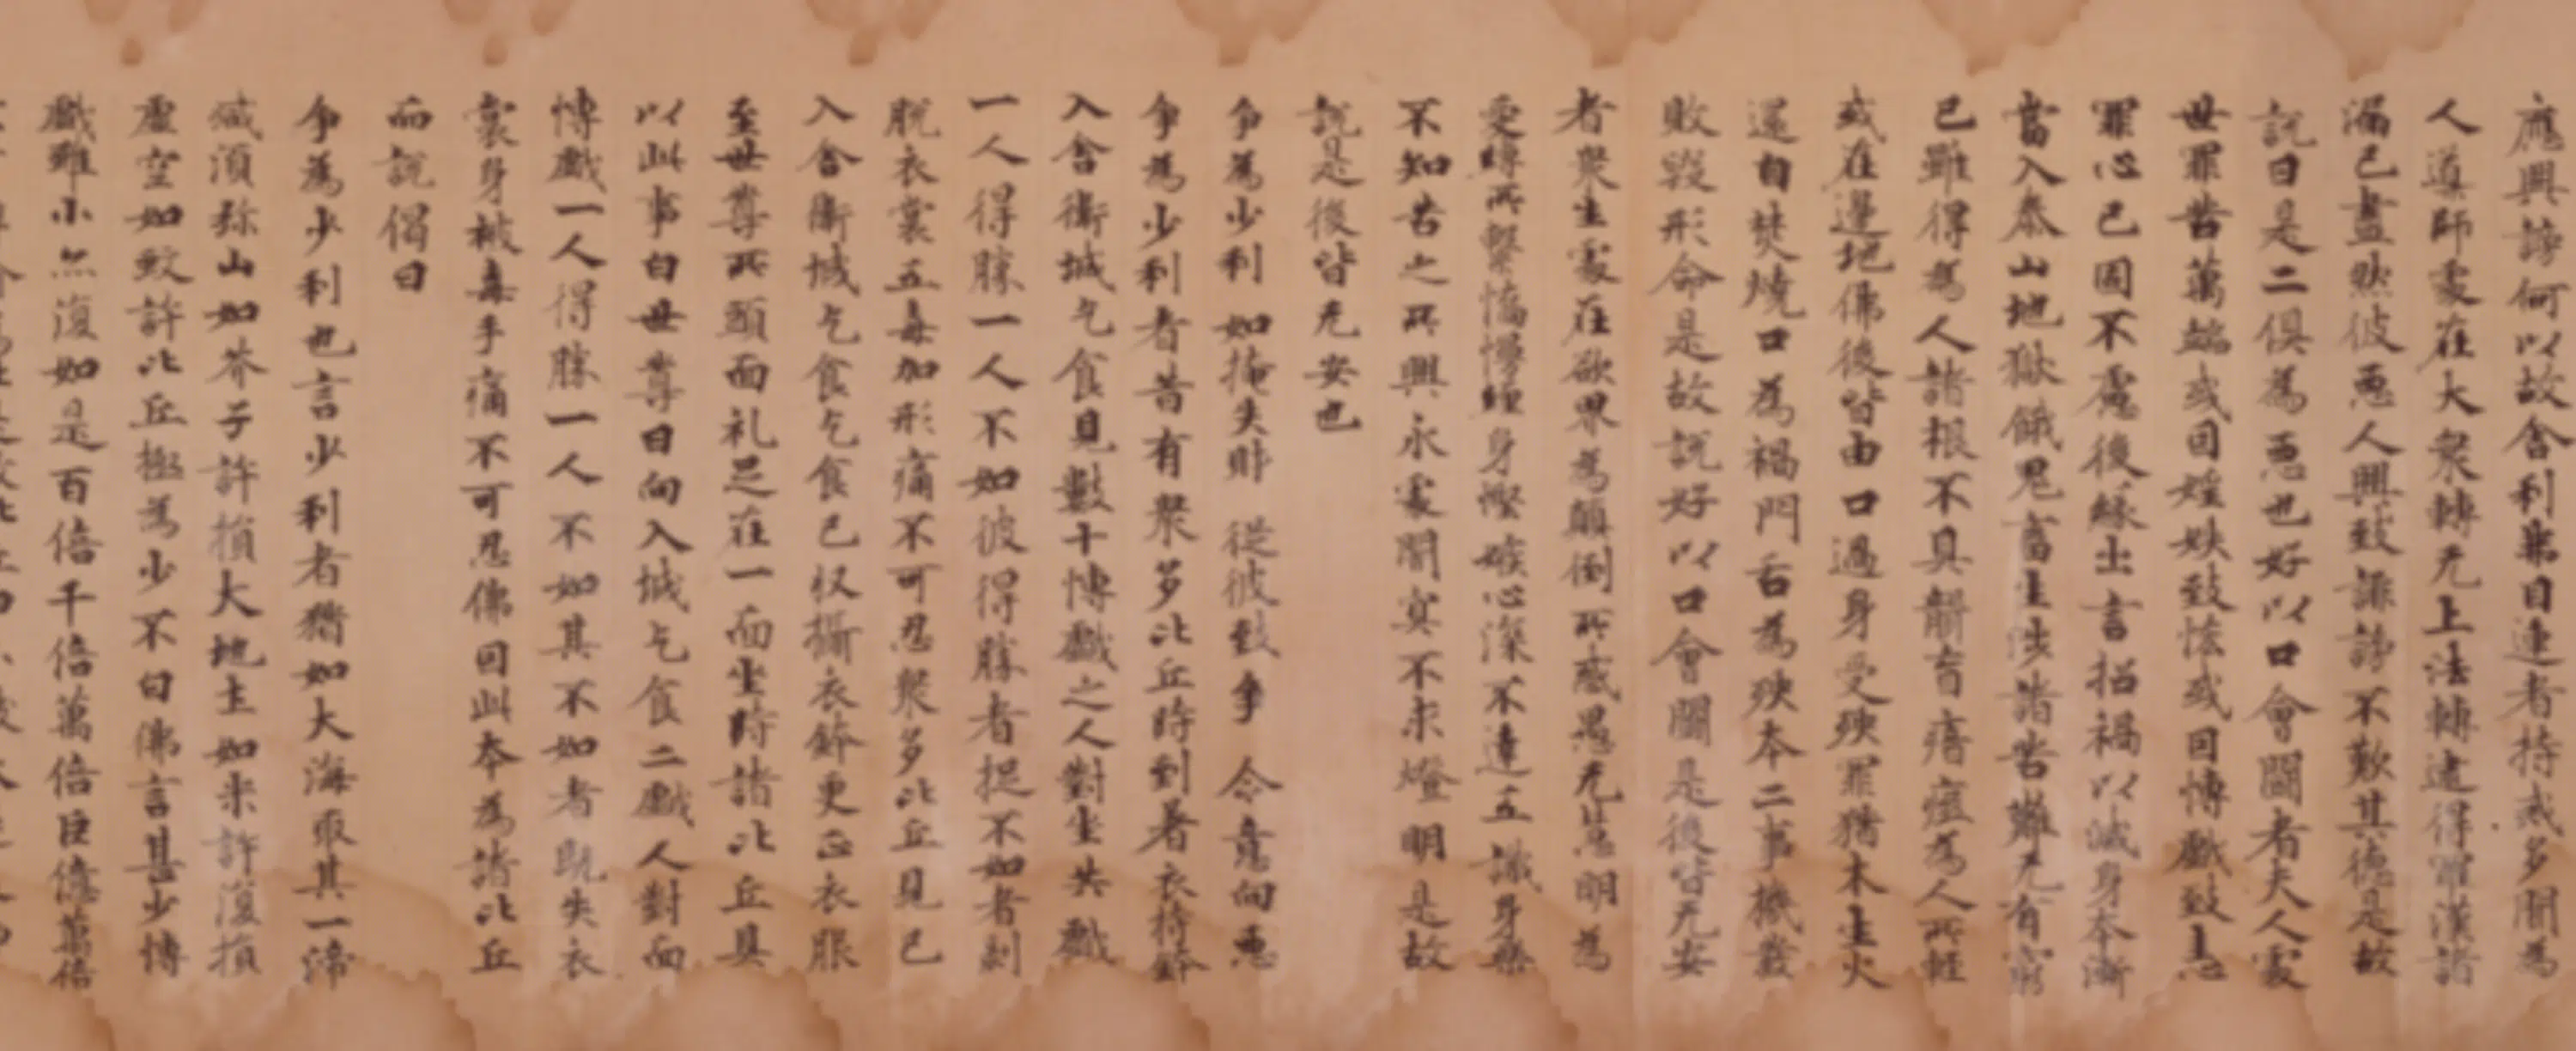 應興謗何以故舍利弗目連者持戒多聞為
人導師處在大衆轉无上法轉逮得羅漢諸
漏已盡然彼惡人興致誹謗不歎其德是故
說曰是二俱為惡也好以口會鬪者夫人處
世罪苦萬端或因婬妷致恠或因博戲致恚
罪心已固不慮後緣出言招禍以滅身本漸
當入泰山地獄餓鬼畜生涉諸苦難无有窮
已雖得為人諸根不具聾盲瘖瘂為人所輕
或在邊地佛後皆由口過身受殃罪猶木生火
還自焚燒口為禍門舌為殃本二事機發
敗毀形命是故說好以口會鬪是後皆无安
者衆生處在欲界為顛倒所惑愚无慧明為
愛縛所繫憍慢纏身慳嫉心深不達五識身樂
不知苦之所興永處闇冥不求燈明是故
說是後皆无安也
爭為少利 如掩失財 從彼致爭 令意向惡
爭為少利者昔有衆多比丘時到著衣持鉢
入舍衛城乞食見數十博戲之人對坐共戲
一人得勝一人不如彼得勝者捉不如者剝
脫衣裳五毒加形痛不可忍衆多比丘見已
入舍衛城乞食乞食已收攝衣鉢更正衣服
至世尊所頭面礼足在一面坐時諸比丘具
以此事白世尊曰向入城乞食二戲人對面
博戲一人得勝一人不如其不如者既失衣
裳身被毒手痛不可忍佛因此本為諸比丘
而說偈曰
爭為少利也言少利者猶如大海取其一渧
減須弥山如芥子許損大地土如米許復損
虛空如蚊許比丘極為少不曰佛言甚少博
戲雖小亦復如是百倍千倍萬倍巨億萬倍